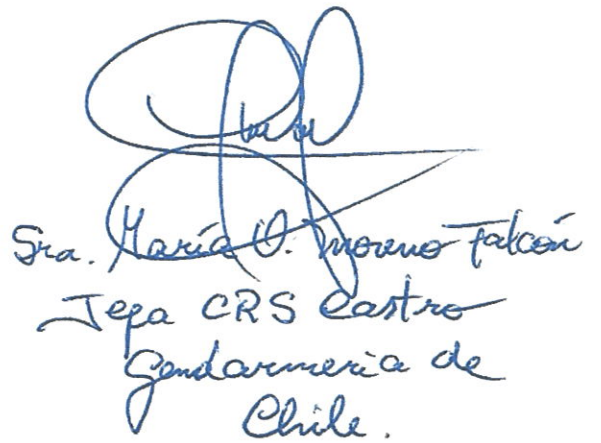 Sra. María O. Moreno Falcón
Jefa CRS Castro
Gendarmeria de
Chile.